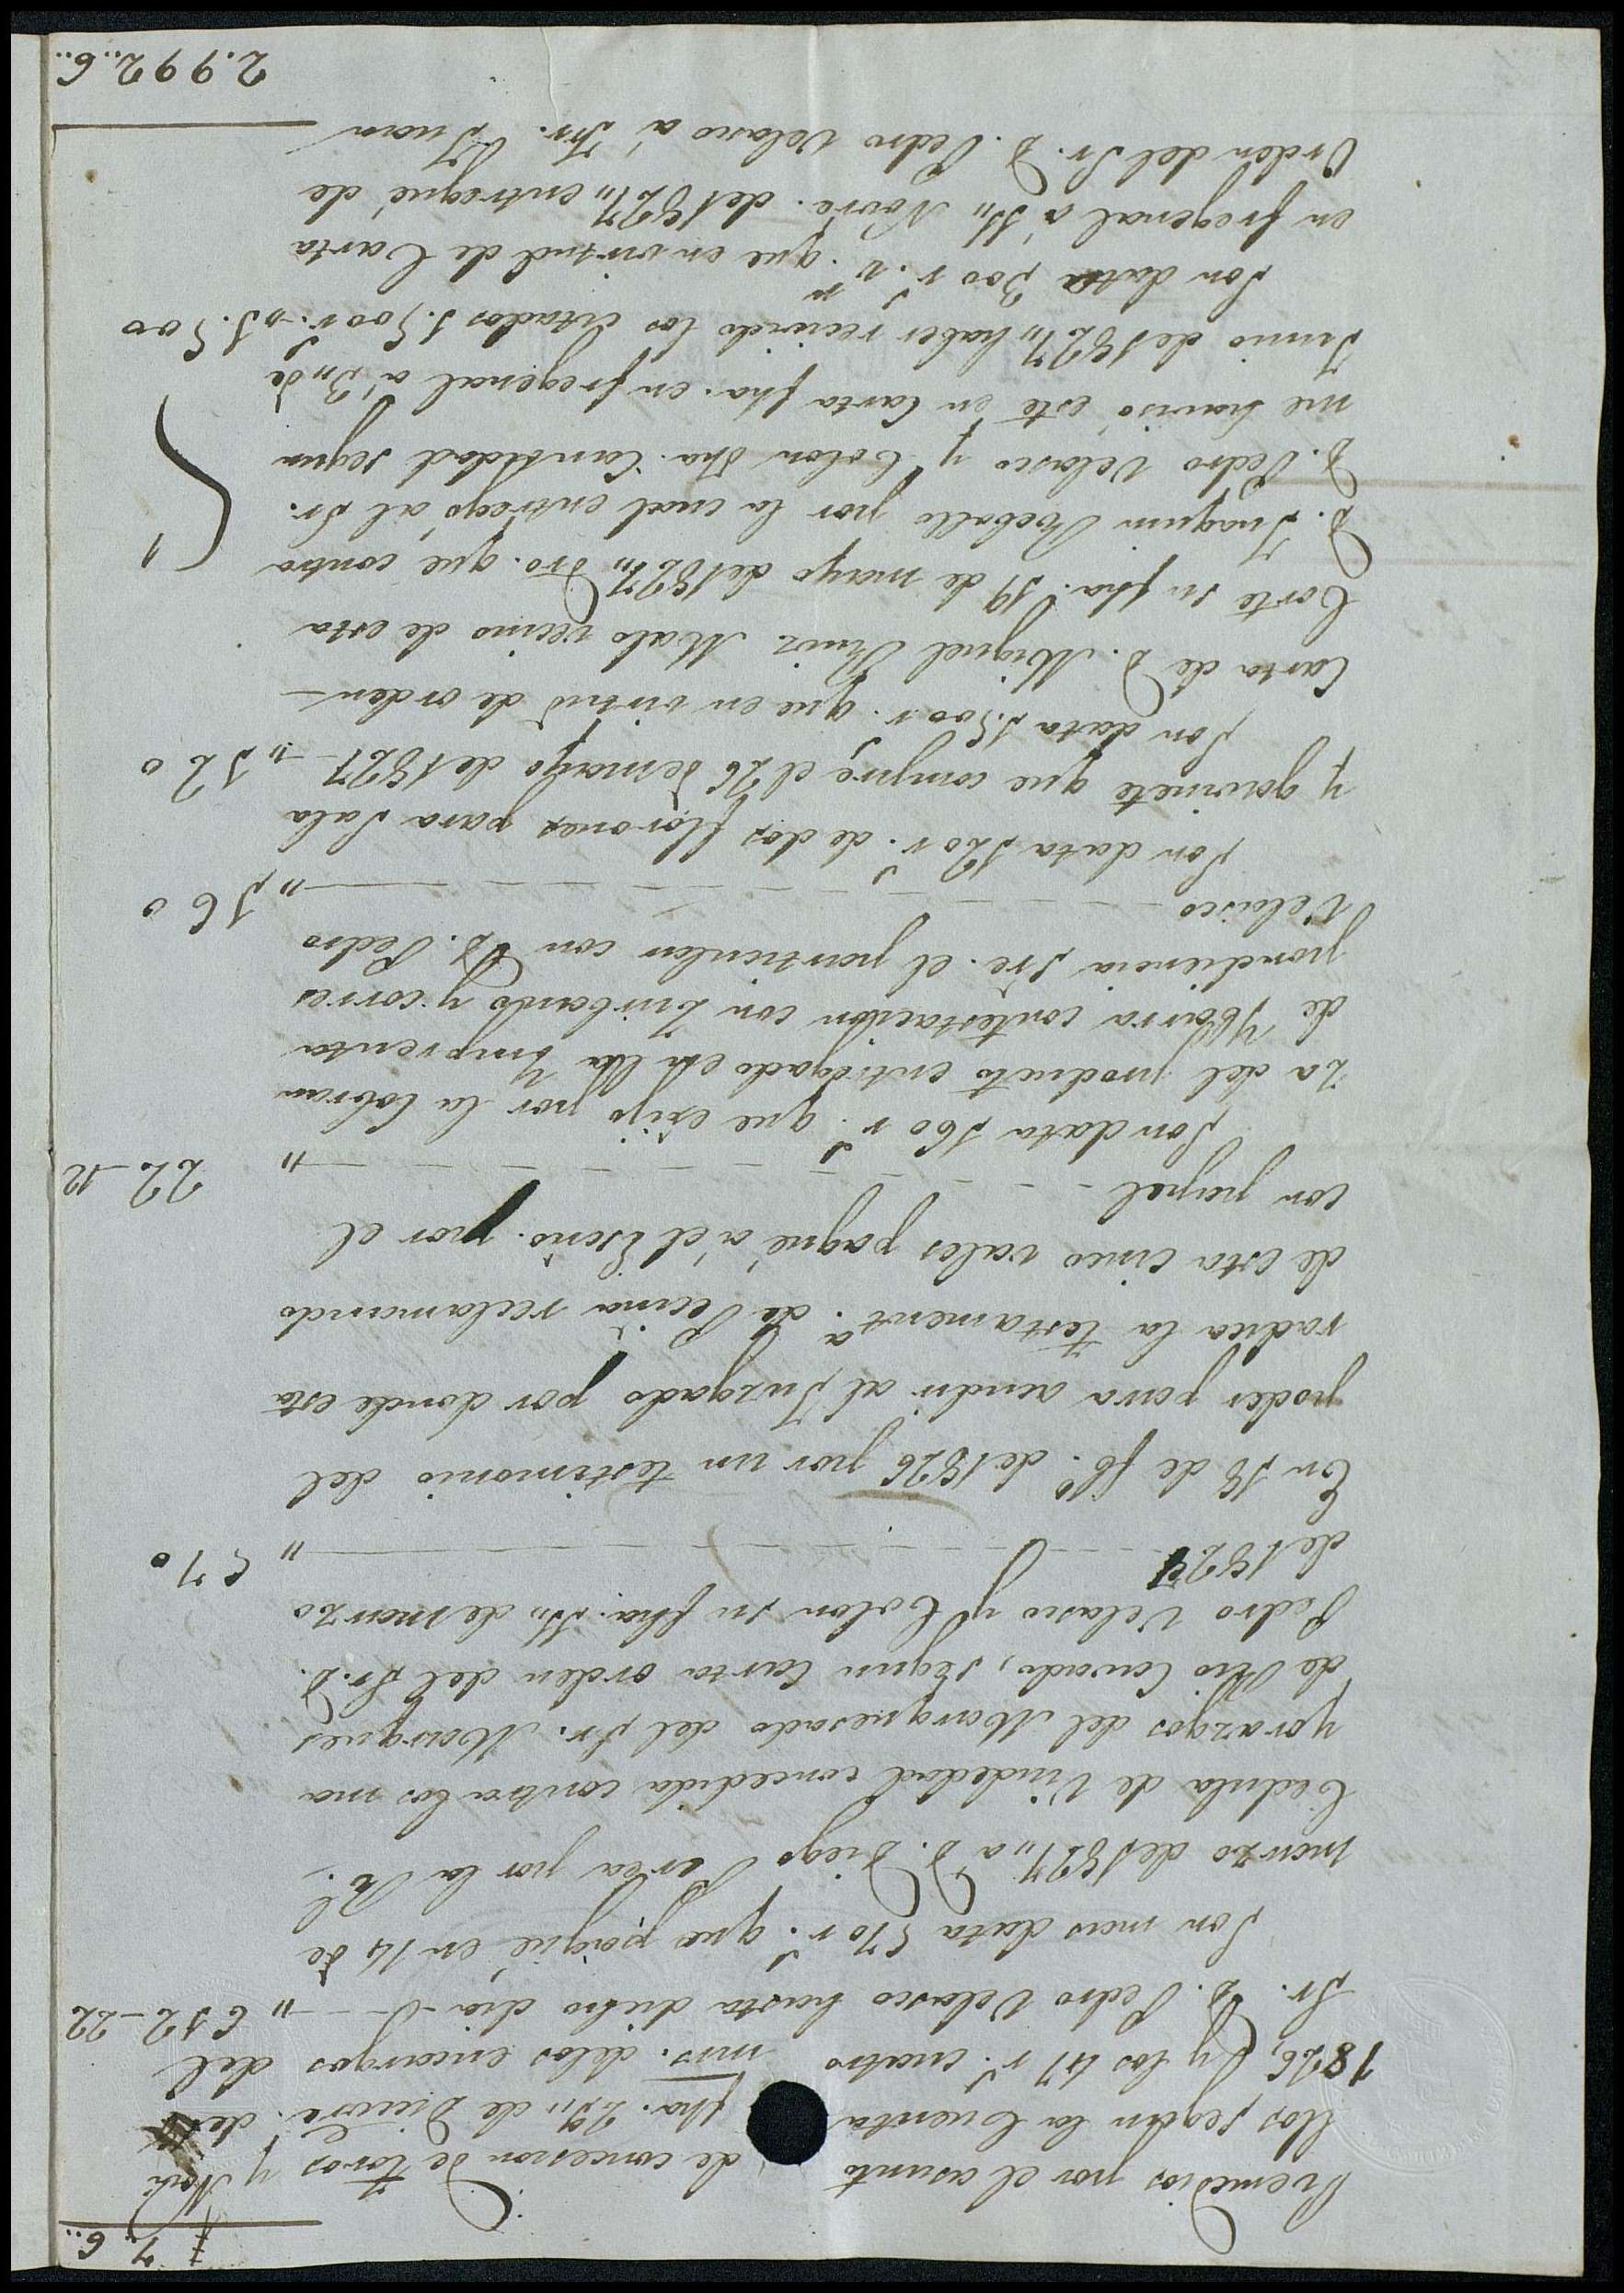 7.. 6..
Remedios por el asunto de concesion de toros y Novi
llos segun la Cuenta fha. 29,, de Dicivre. de
1826,, y los 47 r.s cuatro mrs. delos encargos del
Sr. D. Pedro Velasco hasta dicho dia - - ,, 612-22
Son mas data 570 r.s que pagué en 14 de
marzo de 1827,, a D. Diego Perea por la Rl.
Cedula de Viudedad concedida contra los ma
yorazgos del Marquesado del Sr. Marques
de Rio Cavado, segun Carta orden del Sr. D.
Pedro Velasco y Colon su fha. 11,, de marzo
de 1827 - - - - - ,, 570
En 18 de fbo. de 1826 por un testimonio del
poder para acudir al Juzgado por donde esta
radica la testament.a de Pecina reclamando
de esta cinco vales pagué á el Escño. por el
con papel - - - - - ,, 22-12
Son data 160 r.s que exijo por la cobran
za del producto entregado en la Ymprenta
de Ybarra contestacion con Zurbando y corres
pondiencia sre. el particular con D. Pedro
Velasco - - - - - ,, 160
Son data 120 r.s de dos florones para Sala
y gavinete que compre el 26 de mayo de 1827 - ,, 120
Son data 1.500 r.s que en virtud de orden -
Carta de D. Miguel Ruiz Malo vecino de esta
Corte su fha. 19 de mayo de 1827,, dro. que contra
D. Juaquin Rebollo por la cual entregó al Sr.
D. Pedro Velasco y Colon dha. Cantidad segun
me havisó este en Carta fha. en fregenal á 3,, de
Junio de 1827,, haber recivido los citados 1.500 r.s - ,, 1.500
Son data 300 r.s v.n que en virtud de Carta
en fregenal á 11,, Novre. de 1827,, entregué de
Orden del Sr. D. Pedro Velasco á Fr. Juan
2.992..6..